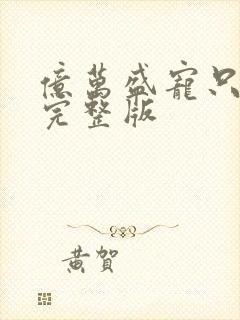 億萬盛寵只
完整版
黃賀